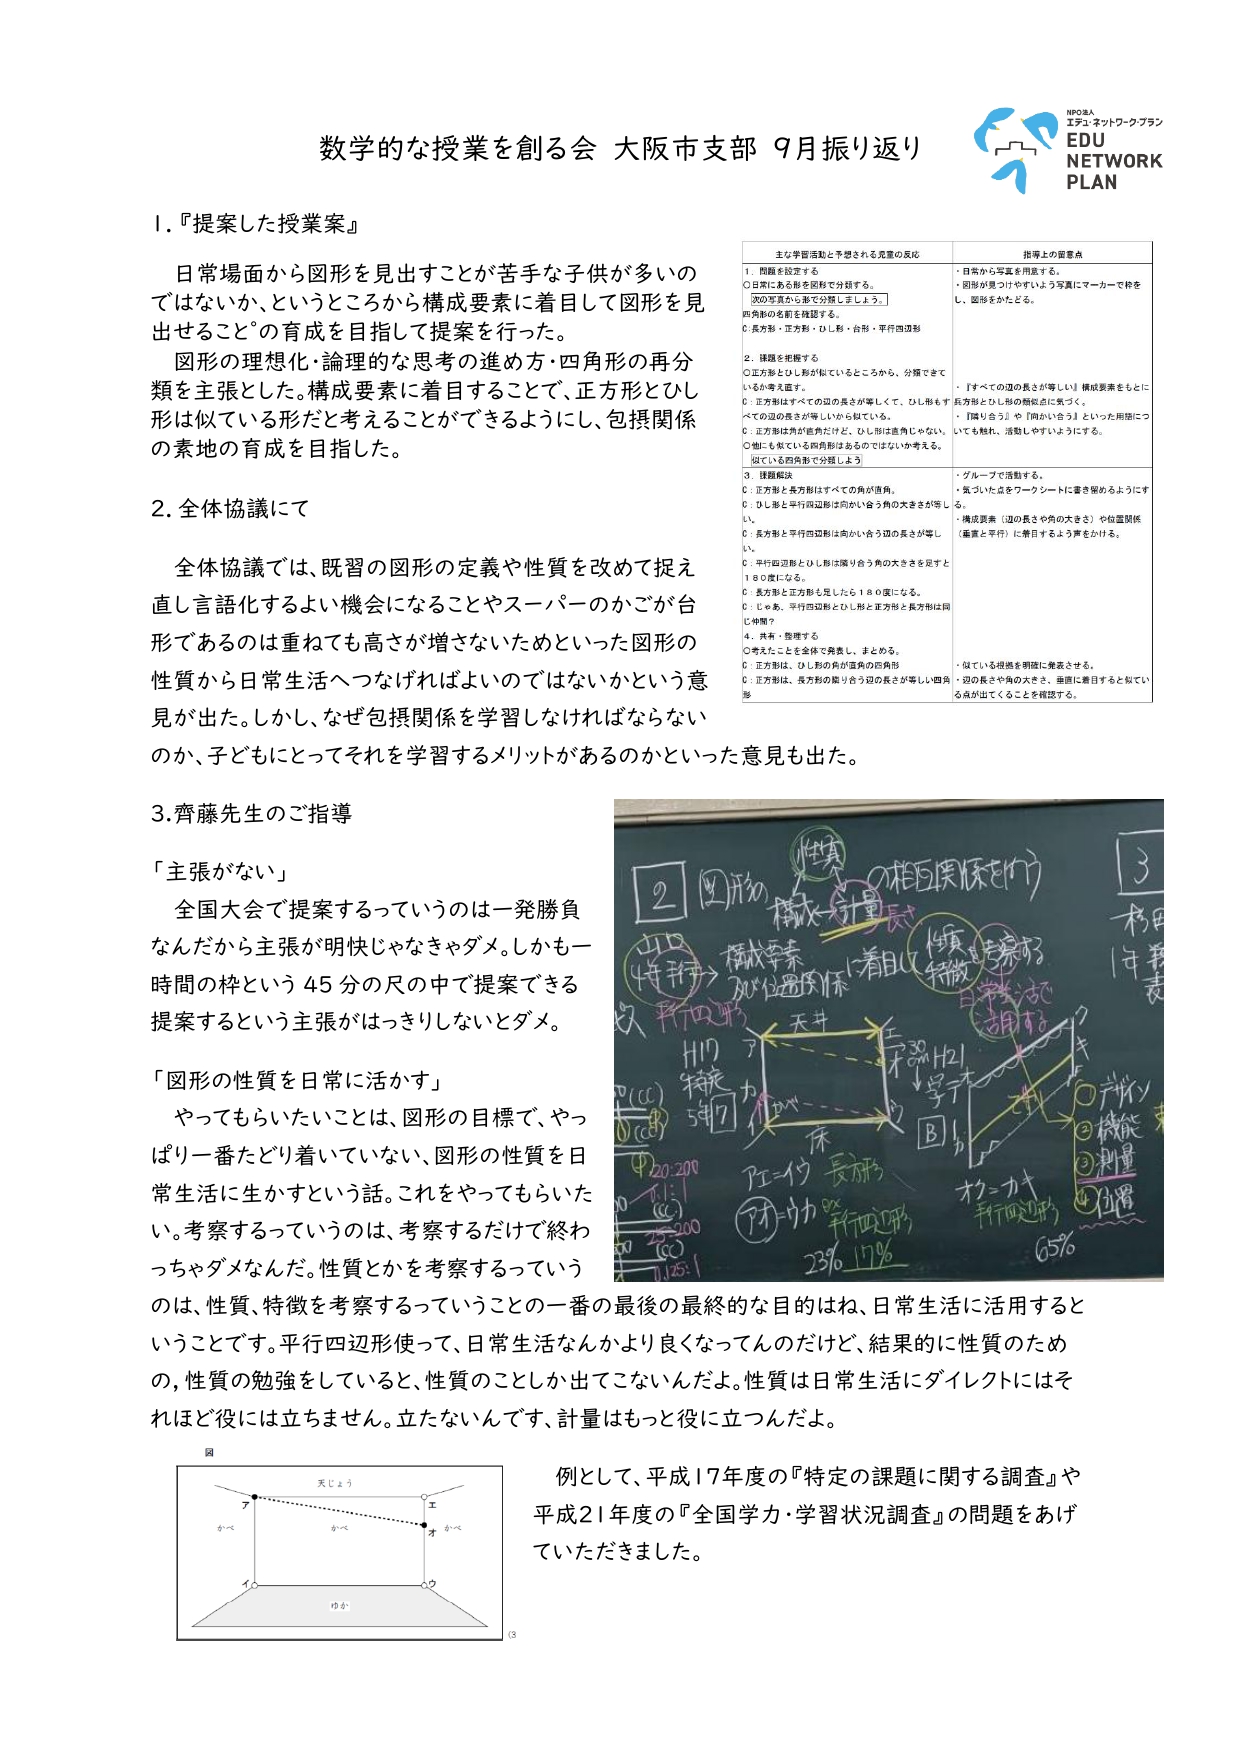 数学的な授業を創る会 大阪市支部 9月振り返り
NPO法人
エデュ・ネットワーク・プラン
EDU
NETWORK
PLAN
1.『提案した授業案』
日常場面から図形を見出すことが苦手な子供が多いの
ではないか、というところから構成要素に着目して図形を見
出せること°の育成を目指して提案を行った。
図形の理想化・論理的な思考の進め方・四角形の再分
類を主張とした。構成要素に着目することで、正方形とひし
形は似ている形だと考えることができるようにし、包摂関係
の素地の育成を目指した。
主な学習活動と予想される児童の反応
指導上の留意点
1．問題を設定する
○日常にある形を図形で分類する。
次の写真から形で分類しましょう。
四角形の名前を確認する。
C:長方形・正方形・ひし形・台形・平行四辺形
・日常から写真を用意する。
・図形が見つけやすいよう写真にマーカーで枠を
し、図形をかたどる。
2．課題を把握する
○正方形とひし形が似ているところから、分類できて
いるか考え直す。
C：正方形はすべての辺の長さが等しくて、ひし形もす
べての辺の長さが等しいから似ている。
C：正方形は角が直角だけど、ひし形は直角じゃない。
○他にも似ている四角形はあるのではないか考える。
似ている四角形で分類しよう
・『すべての辺の長さが等しい』構成要素をもとに
長方形とひし形の類似点に気づく。
・『隣り合う』や『向かい合う』といった用語につ
いても触れ、活動しやすいようにする。
3．課題解決
C：正方形と長方形はすべての角が直角。
C：ひし形と平行四辺形は向かい合う角の大きさが等し
い。
C：長方形と平行四辺形は向かい合う辺の長さが等し
い。
C：平行四辺形とひし形は隣り合う角の大きさを足すと
１８０度になる。
C：長方形と正方形も足したら１８０度になる。
C：じゃあ、平行四辺形とひし形と正方形と長方形は同
じ仲間？
4．共有・整理する
○考えたことを全体で発表し、まとめる。
C：正方形は、ひし形の角が直角の四角形
C：正方形は、長方形の隣り合う辺の長さが等しい四角
形
・グループで活動する。
・気づいた点をワークシートに書き留めるようにす
る。
・構成要素（辺の長さや角の大きさ）や位置関係
（垂直と平行）に着目するよう声をかける。
・似ている根拠を明確に発表させる。
・辺の長さや角の大きさ、垂直に着目すると似てい
る点が出てくることを確認する。
2. 全体協議にて
全体協議では、既習の図形の定義や性質を改めて捉え
直し言語化するよい機会になることやスーパーのかごが台
形であるのは重ねても高さが増さないためといった図形の
性質から日常生活へつなげればよいのではないかという意
見が出た。しかし、なぜ包摂関係を学習しなければならない
のか、子どもにとってそれを学習するメリットがあるのかといった意見も出た。
3.齊藤先生のご指導
「主張がない」
全国大会で提案するっていうのは一発勝負
なんだから主張が明快じゃなきゃダメ。しかも一
時間の枠という 45 分の尺の中で提案できる
提案するという主張がはっきりしないとダメ。
「図形の性質を日常に活かす」
やってもらいたいことは、図形の目標で、やっ
ぱり一番たどり着いていない、図形の性質を日
常生活に生かすという話。これをやってもらいた
い。考察するっていうのは、考察するだけで終わ
っちゃダメなんだ。性質とかを考察するっていう
のは、性質、特徴を考察するっていうことの一番の最後の最終的な目的はね、日常生活に活用すると
いうことです。平行四辺形使って、日常生活なんかより良くなってんのだけど、結果的に性質のため
の,性質の勉強をしていると、性質のことしか出てこないんだよ。性質は日常生活にダイレクトにはそ
れほど役には立ちません。立たないんです、計量はもっと役に立つんだよ。
性質
2 図形の
の相互関係を
構成 計量 長さ
構成要素
及び位置関係に着目し
性質
特徴
を考察する
日常生活で
活用する
平行四辺形
天井
ア
エ
オ
30cm
H21
H17
特定
5年 7
カ
イ
かべ
ウ
床
B
ク
キ
オ
カ
アエ=イウ
長方形
アオ=ウカ
平行四辺形
23% 17%
オク=カキ
平行四辺形
65%
①デザイン
②機能
③測量
④位置
3
20:200
25:200
0.125:1
図
天じょう
ア
エ
かべ
かべ
オ
かべ
イ
ウ
ゆか
(3
例として、平成17年度の『特定の課題に関する調査』や
平成21年度の『全国学力・学習状況調査』の問題をあげ
ていただきました。